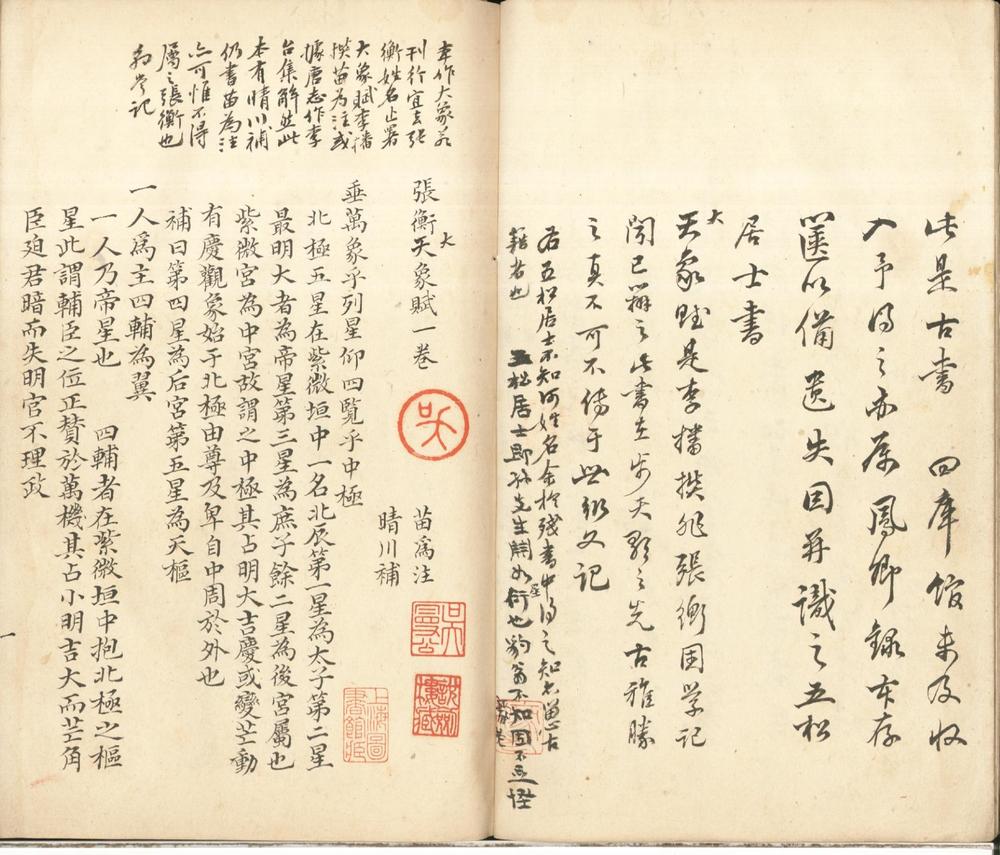 此是古書 四庫館未及收
入予得之亦属鳳卿録存
篋以備遺失因并識之五松
居士書
大
天象賦是李播撰非張衡困学記
聞已辯之此書立步天歌之先古雅勝
之真不可不傳于世
又記
右五松居士不知何姓名余於殘書中得之知
籍者也
五松居士即孫先生星衍也
張衡天象賦一卷
大
苗為注
晴川補
垂萬象乎列星仰四覽乎中極
北極五星在紫微垣中一名北辰第一星為太子第二星
最明大者為帝星第三星為庶子餘二星為後宮屬也
紫微宮為中宮故謂之中極其占明大吉慶或變芒動
有慶觀象始于北極由尊及卑自中周於外也
補曰第四星為后宮第五星為天樞
一人為主四輔為翼
一人乃帝星也 四輔者在紫微垣中抱北極之樞
星此謂輔臣之位正贊於萬機其占小明吉大而芒角
臣廹君暗而失明官不理政
一
本作大象若
刊行宜去張
衡姓名止署
大象賦李播
撰苗為注或
據唐志作李
台集解然此
本有晴川補
仍書苗為注
亦可惟不得
屬之張衡也
上海圖書館藏